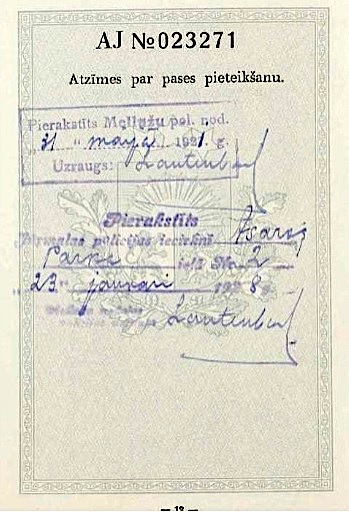 AJ №023271
Atzīmes par pases pieteikšanu.
Pierakstīts Mellužu pol. nod.
"31" maya 1921. g.
Uzraugs: Lautenbach
Pierakstīts
policijas iecirknī Asaros
Parka ielā № 2
"23" janvari 1928 g.
Lautenbach
— 13 —